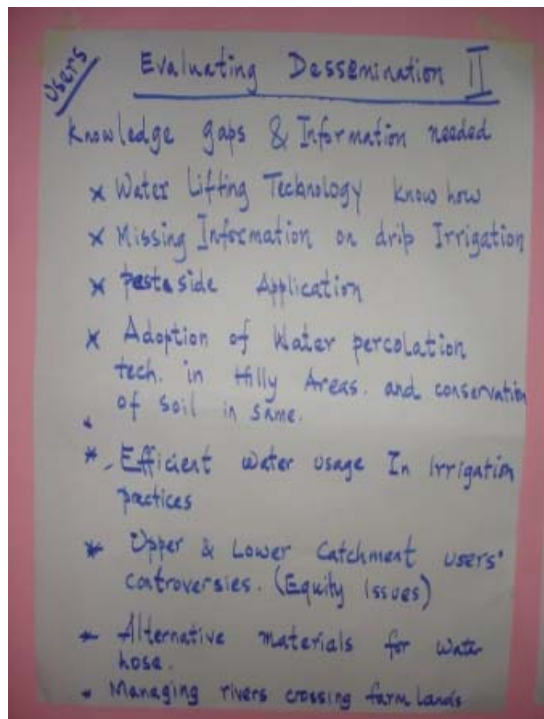 Users
Evaluating Dessemination II
Knowledge gaps & Information needed
* Water Lifting Technology know how
* Missing Information on drip Irrigation
* pesteside Application
* Adoption of Water percolation
tech. in Hilly Areas. and conservation
of soil in same.
* Efficient water usage In Irrigation
practices
* Upper & Lower Catchment users'
controversies. (Equity Issues)
* Alternative materials for water
hose.
* Managing rivers crossing farm lands